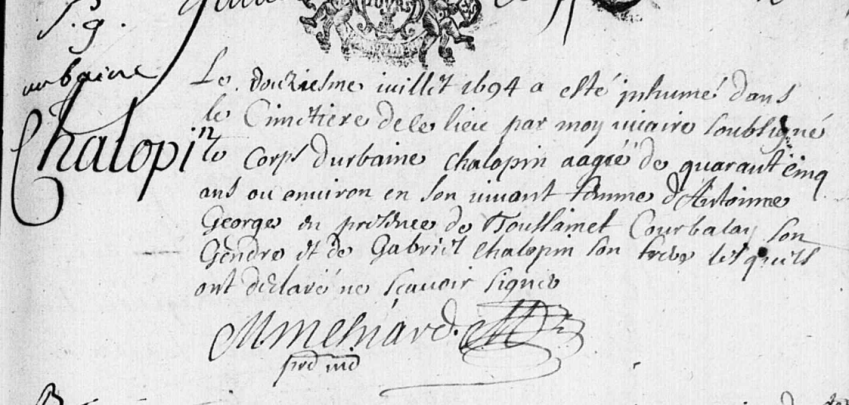 S.g.
urbaine
Chalopin
Le douziesme juillet 1694 a esté inhumé dans
le Cimetiere de ce lieu par moy vicaire soubsigné
le corps d'urbaine chalopin aagée de quarant cinq
ans ou environ en son vivant femme d'Antoinne
George en presence de Toussainct Courbalay son
Gendre et de Gabriel chalopin son frere lesquels
ont déclaré ne scavoir signer